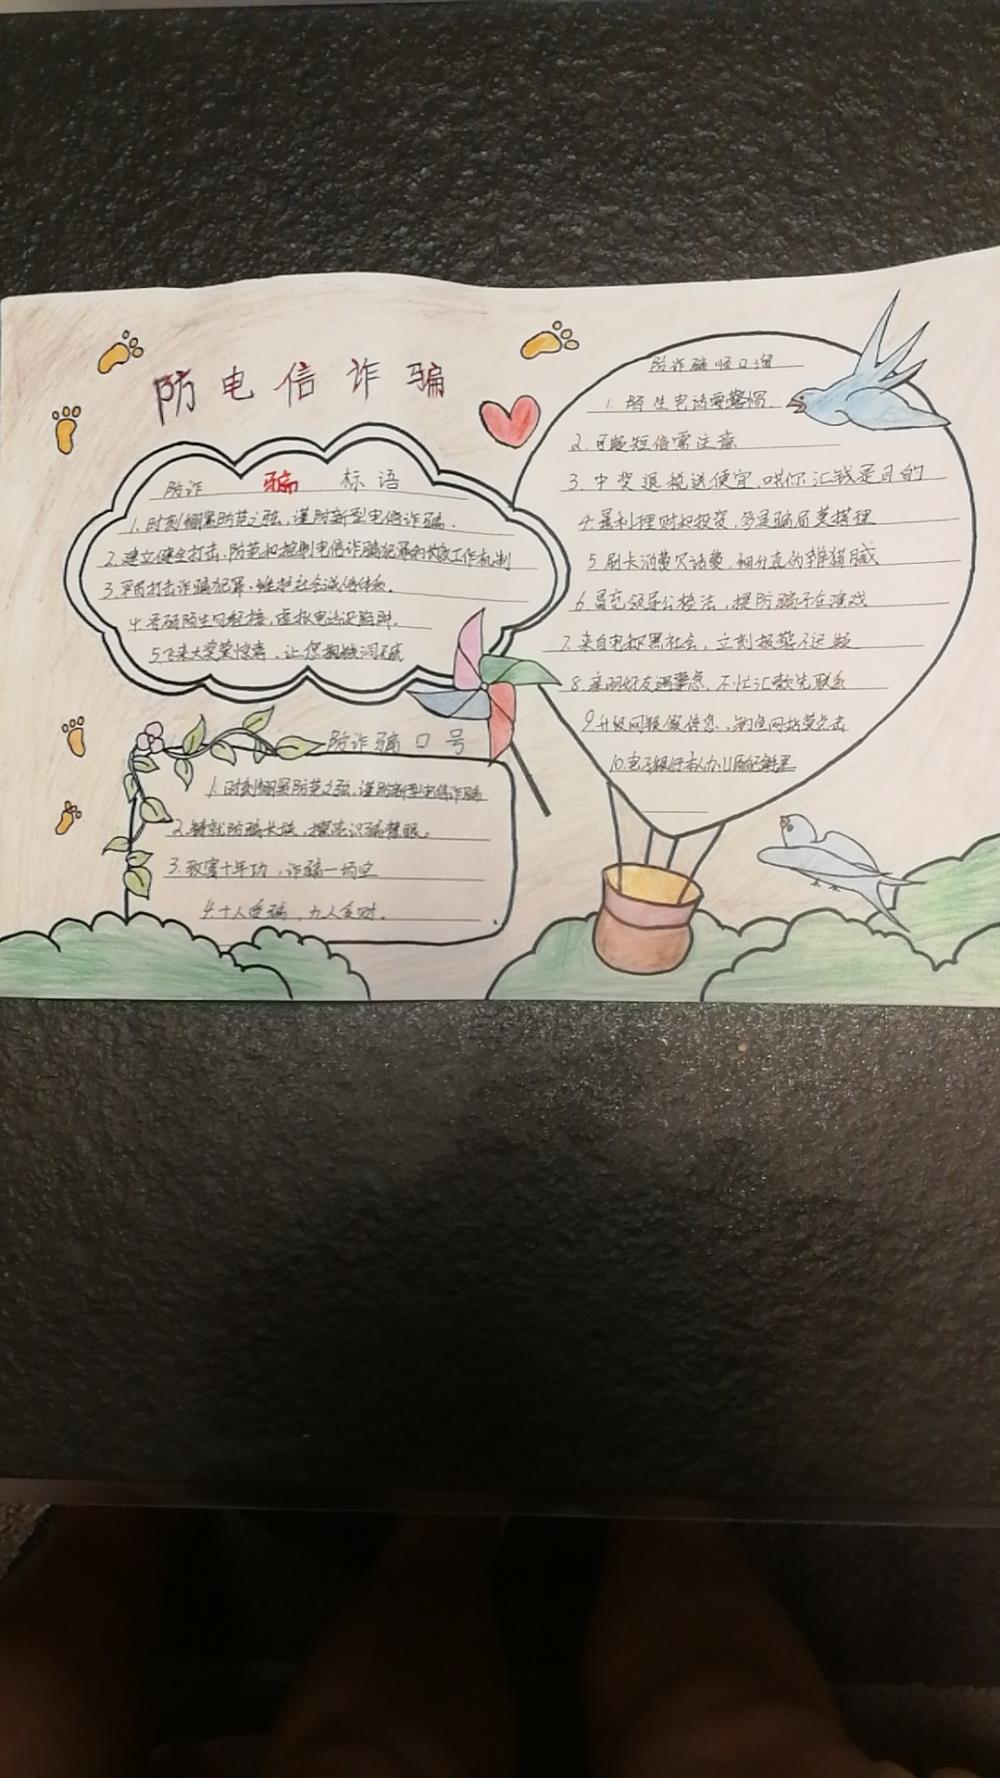 防电信诈骗
防诈骗标语
1.时刻绷紧防范之弦,谨防新型电信诈骗.
2.建立健全打击,防范和控制电信诈骗犯罪的长效工作机制
3.严厉打击诈骗犯罪,维护社会诚信体系。
4.陌生勾轻接,虚拟电话设陷阱.
5.飞来大奖莫惊喜,让您掏钱洞无底
防诈骗口号
1.时刻绷紧防范之弦,谨防新型电信诈骗
2.铸就防骗长城,擦亮识骗慧眼。
3.致富十年功,诈骗一场空
4.十人受骗,九人贪财.
防诈骗顺口溜
1.陌生电话要警惕
2.可疑短信需注意
3.中奖退税送便宜,哄你汇钱是目的
4.暴利理财和投资,多是骗局莫搭理
5.刷卡消费欠话费,细分真伪辨猫腻
6.冒充领导公检法,提防骗子在演戏
7.来自电称黑社会,立刻报警不迟疑
8.亲朋好友遇紧急,不忙汇款先联系
9.升级网银假信息,钓鱼网站莫点击
10.电子银行本人办,U盾